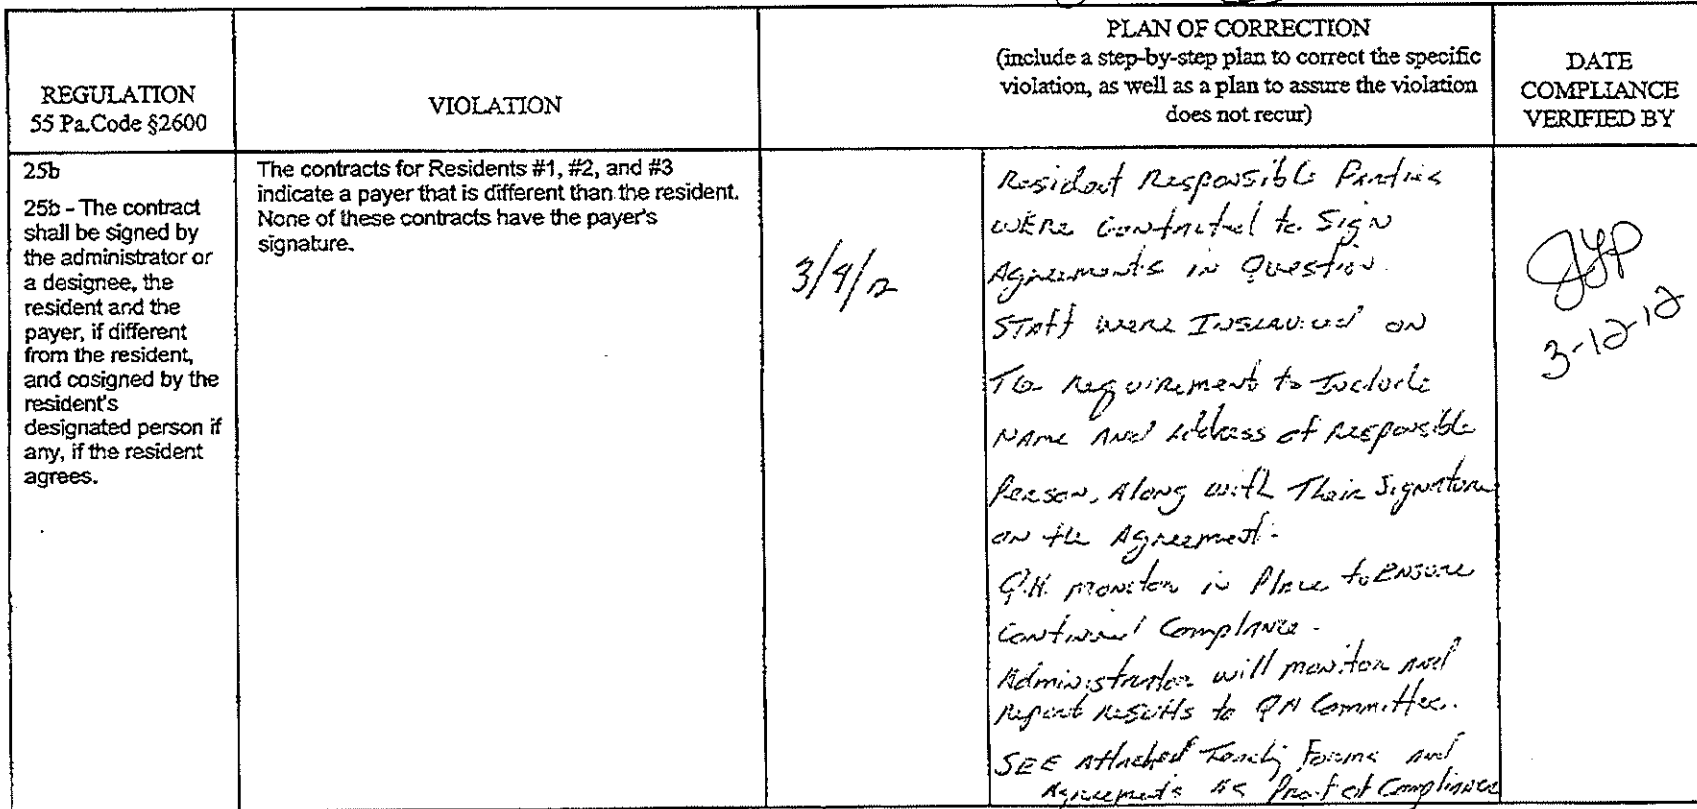 REGULATION
55 Pa.Code §2600
VIOLATION
PLAN OF CORRECTION
(include a step-by-step plan to correct the specific
violation, as well as a plan to assure the violation
does not recur)
DATE
COMPLIANCE
VERIFIED BY
25b
25b - The contract
shall be signed by
the administrator or
a designee, the
resident and the
payer, if different
from the resident,
and cosigned by the
resident's
designated person if
any, if the resident
agrees.
The contracts for Residents #1, #2, and #3
indicate a payer that is different than the resident.
None of these contracts have the payer's
signature.
3/9/12
Resident Responsible Parties
were Contacted to Sign
Agreements in Question.
Staff were Inserviced on
The requirement to Include
Name And Address of Responsible
Person, Along with Their Signature
on the Agreement.
Q.A. monitor in Place to Ensure
Continued Compliance.
Administrator will monitor and
report results to QA Committee.
SEE Attached Forms and
Agreements as Proof of Compliance
3-12-12